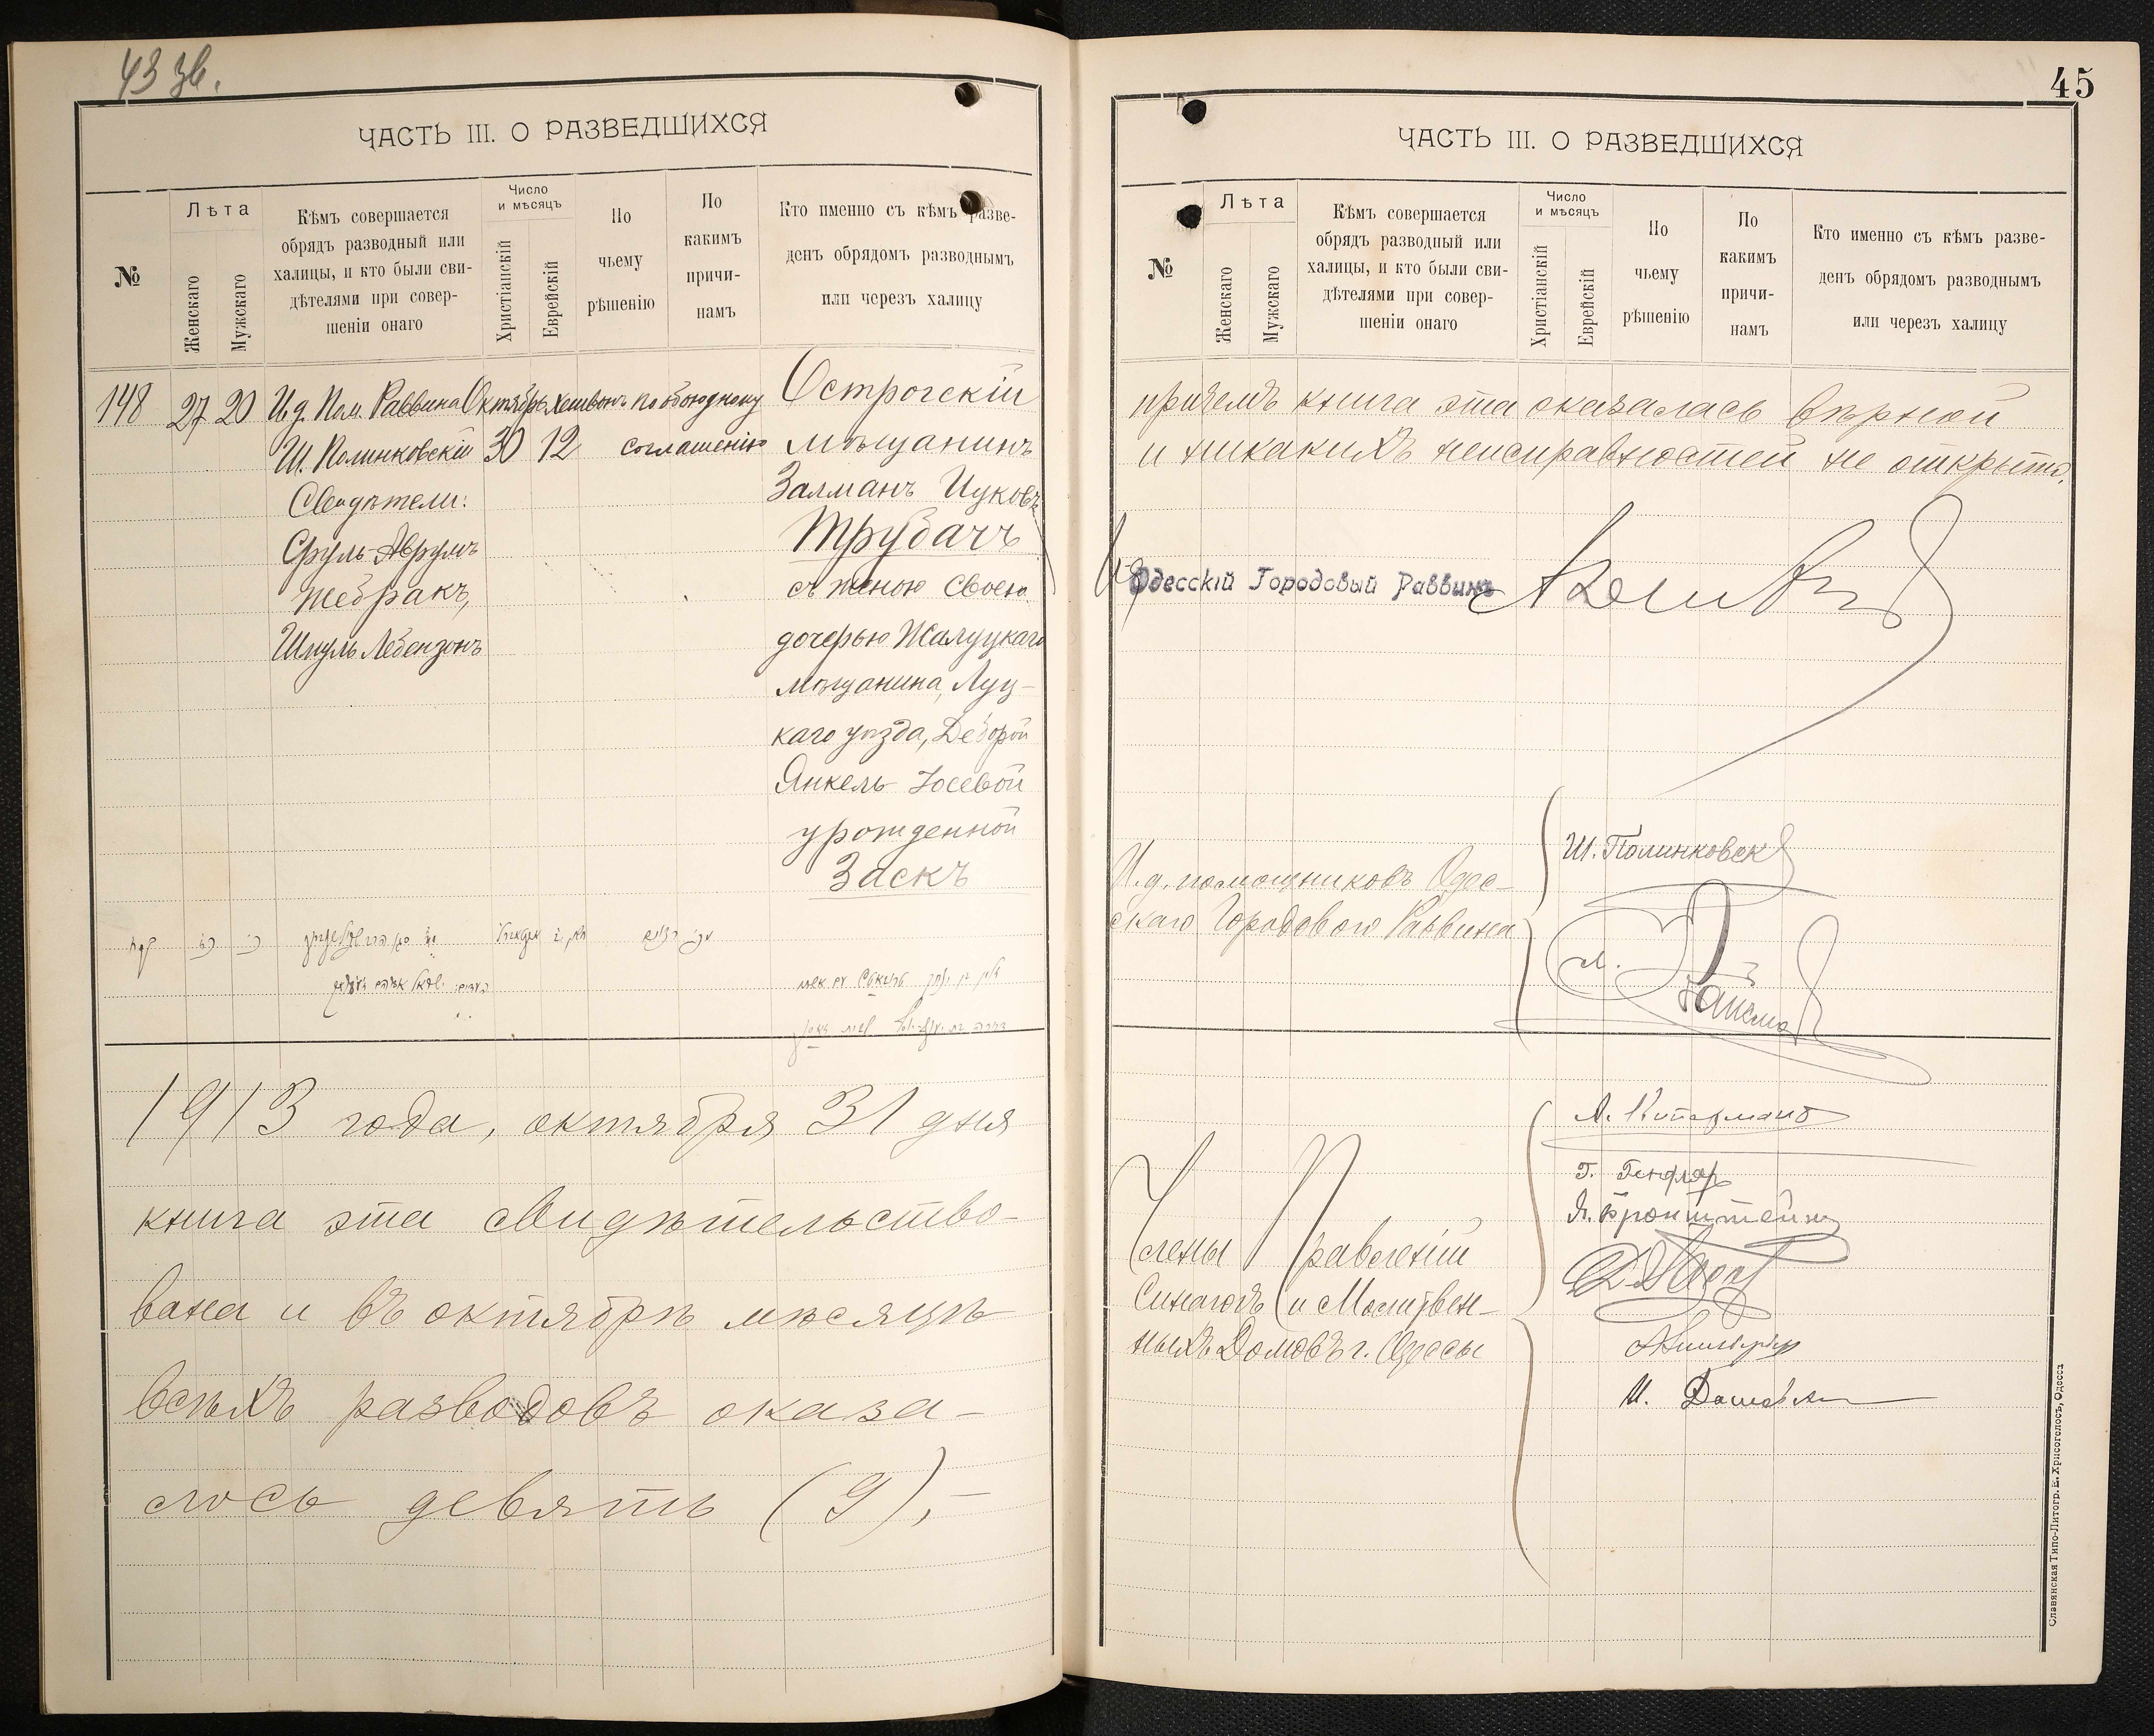 43 зв.
ЧАСТЬ III. О РАЗВЕДШИХСЯ
№
Лѣта
Женскаго
Мужскаго
Кѣмъ совершается
обрядъ разводный или
халицы, и кто были сви-
дѣтелями при совер-
шеніи онаго
Число
и мѣсяцъ
Христіанскій
Еврейскій
По
чьему
рѣшенію
По
какимъ
причи-
намъ
Кто именно съ кѣмъ разве-
денъ обрядомъ разводнымъ
или черезъ халицу
148
27
20
И. д. Пом. Раввина
Ш. Полинковскій
Свидѣтели:
Сруль-Аврумъ
Жебракъ,
Шмуль Лебензонъ
Октябрь
30
Хешвонъ
12
по обоюдному
соглашенію
Острогскій
мѣщанинъ
Залманъ Ицковъ
Трубачъ
съ женою своею
дочерью Жалуцкаго
мѣщанина, Луц-
каго уѣзда, Деборой
Янкель-Іосевой
урожденной
Заскъ
1913 года, октября 31 дня
книга эта свидѣтельство-
вана и въ октябрѣ мѣсяцѣ
всѣхъ разводовъ оказа-
лось девять (9),-
45
ЧАСТЬ III. О РАЗВЕДШИХСЯ
№
Лѣта
Женскаго
Мужскаго
Кѣмъ совершается
обрядъ разводный или
халицы, и кто были сви-
дѣтелями при совер-
шеніи онаго
Число
и мѣсяцъ
Христіанскій
Еврейскій
По
чьему
рѣшенію
По
какимъ
причи-
намъ
Кто именно съ кѣмъ разве-
денъ обрядомъ разводнымъ
или черезъ халицу
причемъ книга эта оказалась вѣрной
и никакихъ неисправностей не открыто.
Одесскій Городовый Раввинъ
И. д. помощниковъ Одес-
скаго Городового Раввина
Ш. Полинковск
Члены Правленій
Синагогъ и Молитвен-
ныхъ Домовъ г. Одессы
Г. Генфер
Я. Бронштейнъ
Славянская Типо-Литогр. Е. Хрисогелосъ, Одесса